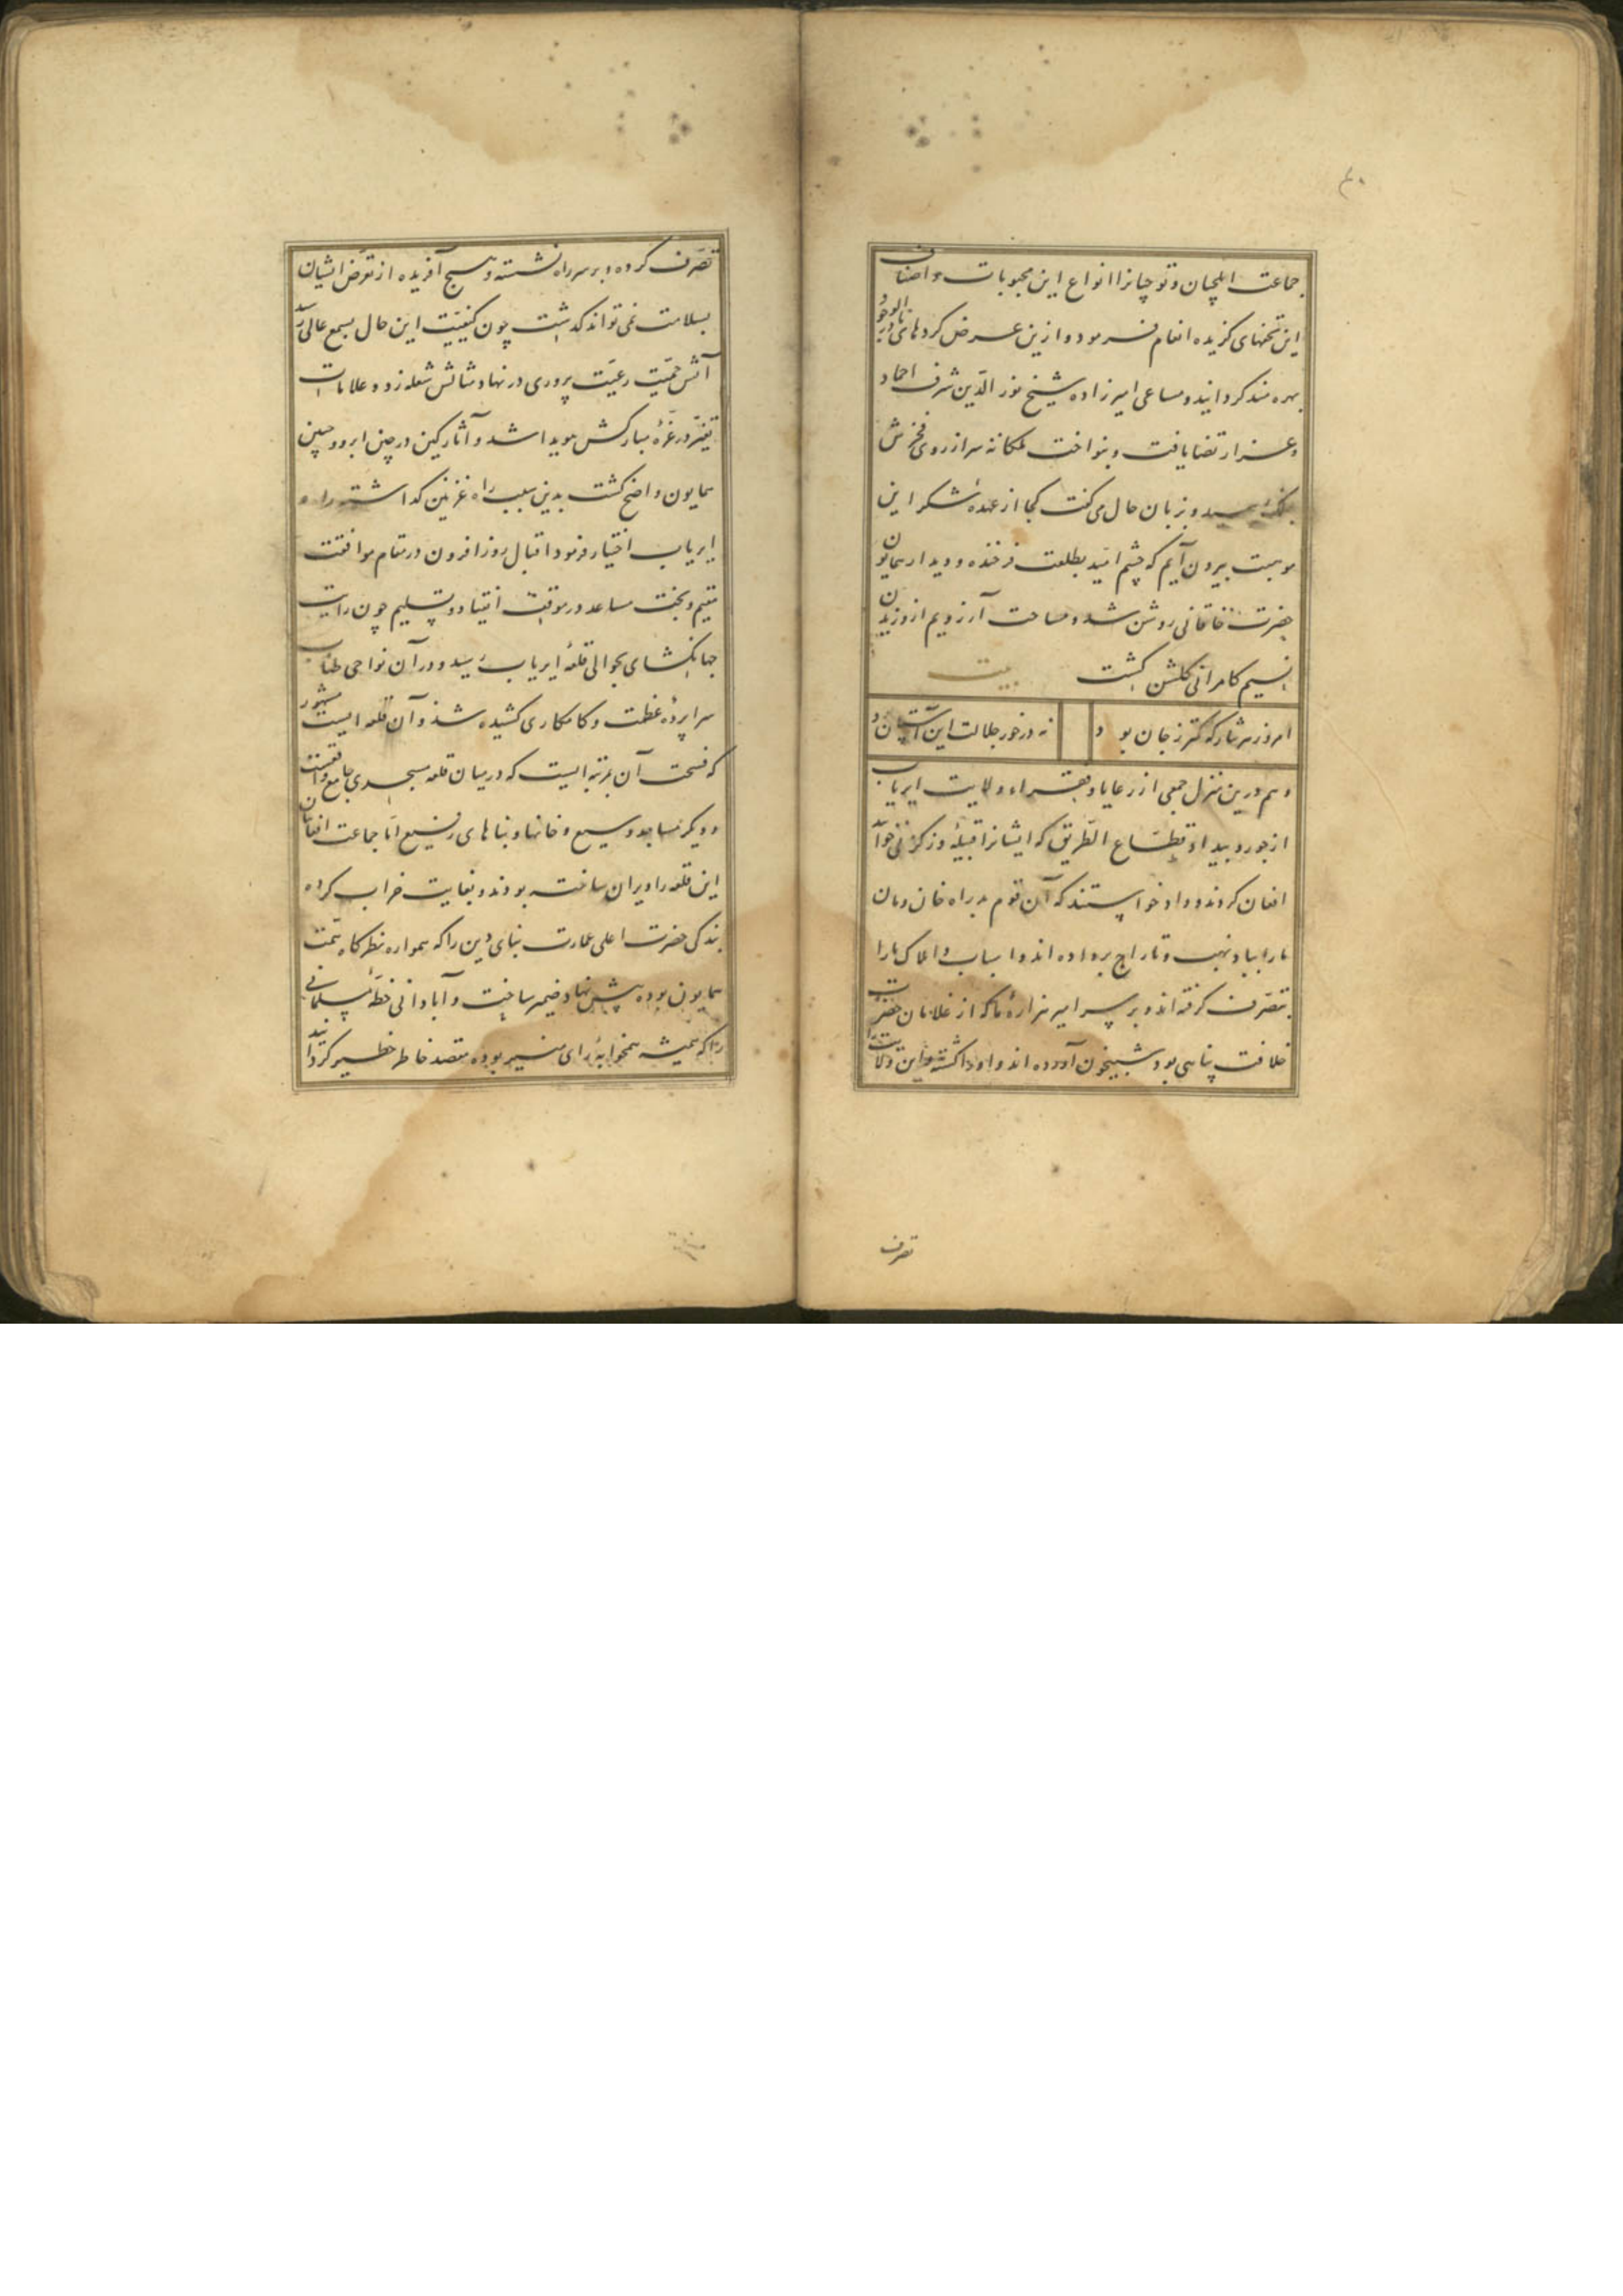 ۴۰
جماعت ایلچیان و نوچیانرا انواع این محبوبات و اصناف
این تحفهای گزیده انعام فرمود و ازین عرض کردهای نادر الوجود
بهره مند کردانید و مساعی امیرزاده شیخ نور الدین شرف احماد
و عز ارتضا یافت و بنواخت ملکانه سر از روی فخرش
بفلک رسید و بزبان حال می کفت کجا از عهدهٔ شکر این
موهبت بیرون آیم که چشم امید بطلعت فرخنده و دیدار همایون
حضرت خاقانی روشن شد و ساحت آرزویم از وزیدن
نسیم کامرانی کلشن کشت بیت
امروز هر نثار که کمتر ز جان بود نه در خور جلالت این آستان بود
و هم درین منزل جمعی از رعایا و فقراء ولایت ایریاب
از جور و بیداد قطاع الطریق که ایشانرا قبیلهٔ وزکزنی خوانند
افغان کردند و داد خواستند که آن قوم بد راه خان و مان
ما را بباد نهب و تاراج برداده اند و اسباب و املاک ما را
بتصرف کرفته اند و بر سر امیر هزارهٔ ما که از غلامان حضرت
خلافت پناهی بود شبیخون آورده اند و او را کشته و این ولایت را
تصرف
تصرف کرده و بر سر راه نشسته و هیچ آفریده از تعرض ایشان
بسلامت نمی تواند کذشت چون کیفیت این حال بسمع عالی رسید
آتش حمیت رعیت پروری در نهاد مبارکش شعله زد و علامات
تغیر در غرهٔ مبارکش هویدا شد و آثار کین در چین ابرو و جبین
همایون واضح کشت بدین سبب راه غزنین کذاشته راه
ایریاب اختیار فرمود اقبال روز افزون در مقام موافقت
مقیم و بخت مساعد در موقف انقیاد و تسلیم چون رایت
جهانکشای بحوالی قلعهٔ ایریاب رسید و در آن نواحی طناب
سراپردهٔ عظمت و کامکاری کشیده شد و آن قلعه ایست مشهور
که فسحت آن بمرتبه ایست که در میان قلعه مسجدی جامع واقعست
و دیکر مساجد وسیع و خانها و بناهای رفیع اما جماعت افغانان
این قلعه را ویران ساخته بودند و بغایت خراب کرده
بندکی حضرت اعلی عمارت بنای دین را که همواره نظرکاه همت
همایون بوده پیش نهاد ضمیر ساخت و آبادانی خطهٔ مسلمانی
را که همیشه همخوابهٔ رای منیر بوده مقصد خاطر خطیر کردانید